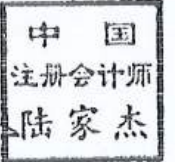 中国
注册会计师
陆家杰